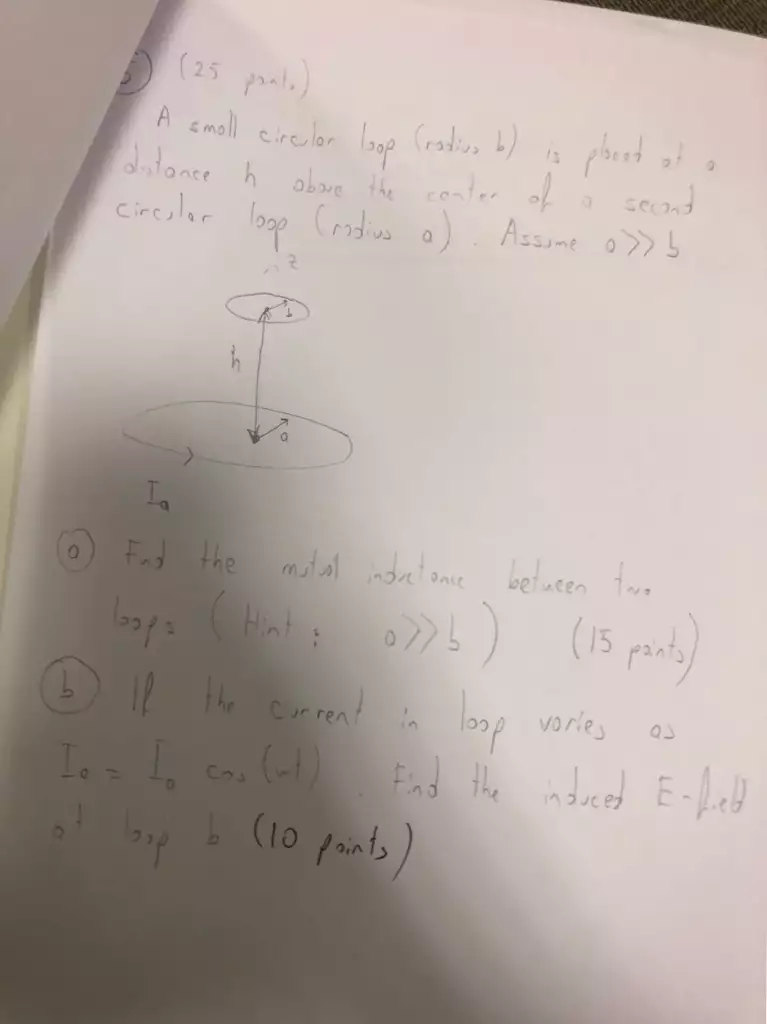 5) (25 points)
A small circular loop (radius b) is placed at a
distance h above the center of a second
circular loop (radius a). Assume a>>b
z
b
h
a
Ia
a) Find the mutual inductance between two
loops (Hint: a>>b) (15 points)
b) If the current in loop varies as
Ia = Io cos(wt). Find the induced E-field
at loop b (10 points)